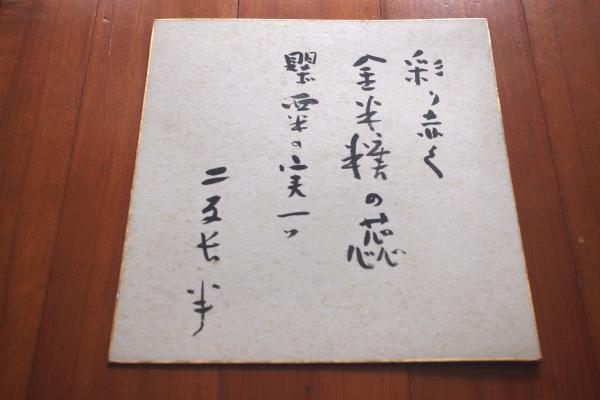 彩り赤く
金米糖の蕊
罌粟の実一つ
二五長半